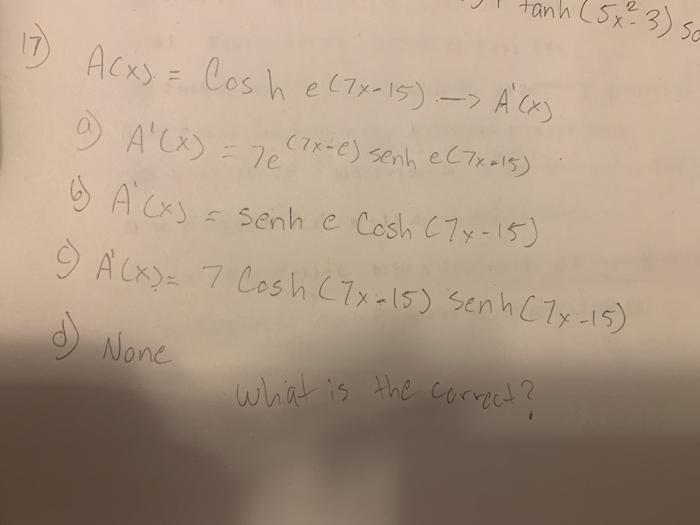 tanh (5x²-3) so
17) A(x) = Cosh e(7x-15) -> A'(x)
a) A'(x) = 7e^(7x-e) senh e(7x-15)
b) A'(x) = senh e Cosh (7x-15)
c) A'(x) = 7 Cosh (7x-15) senh (7x-15)
d) None
What is the correct?